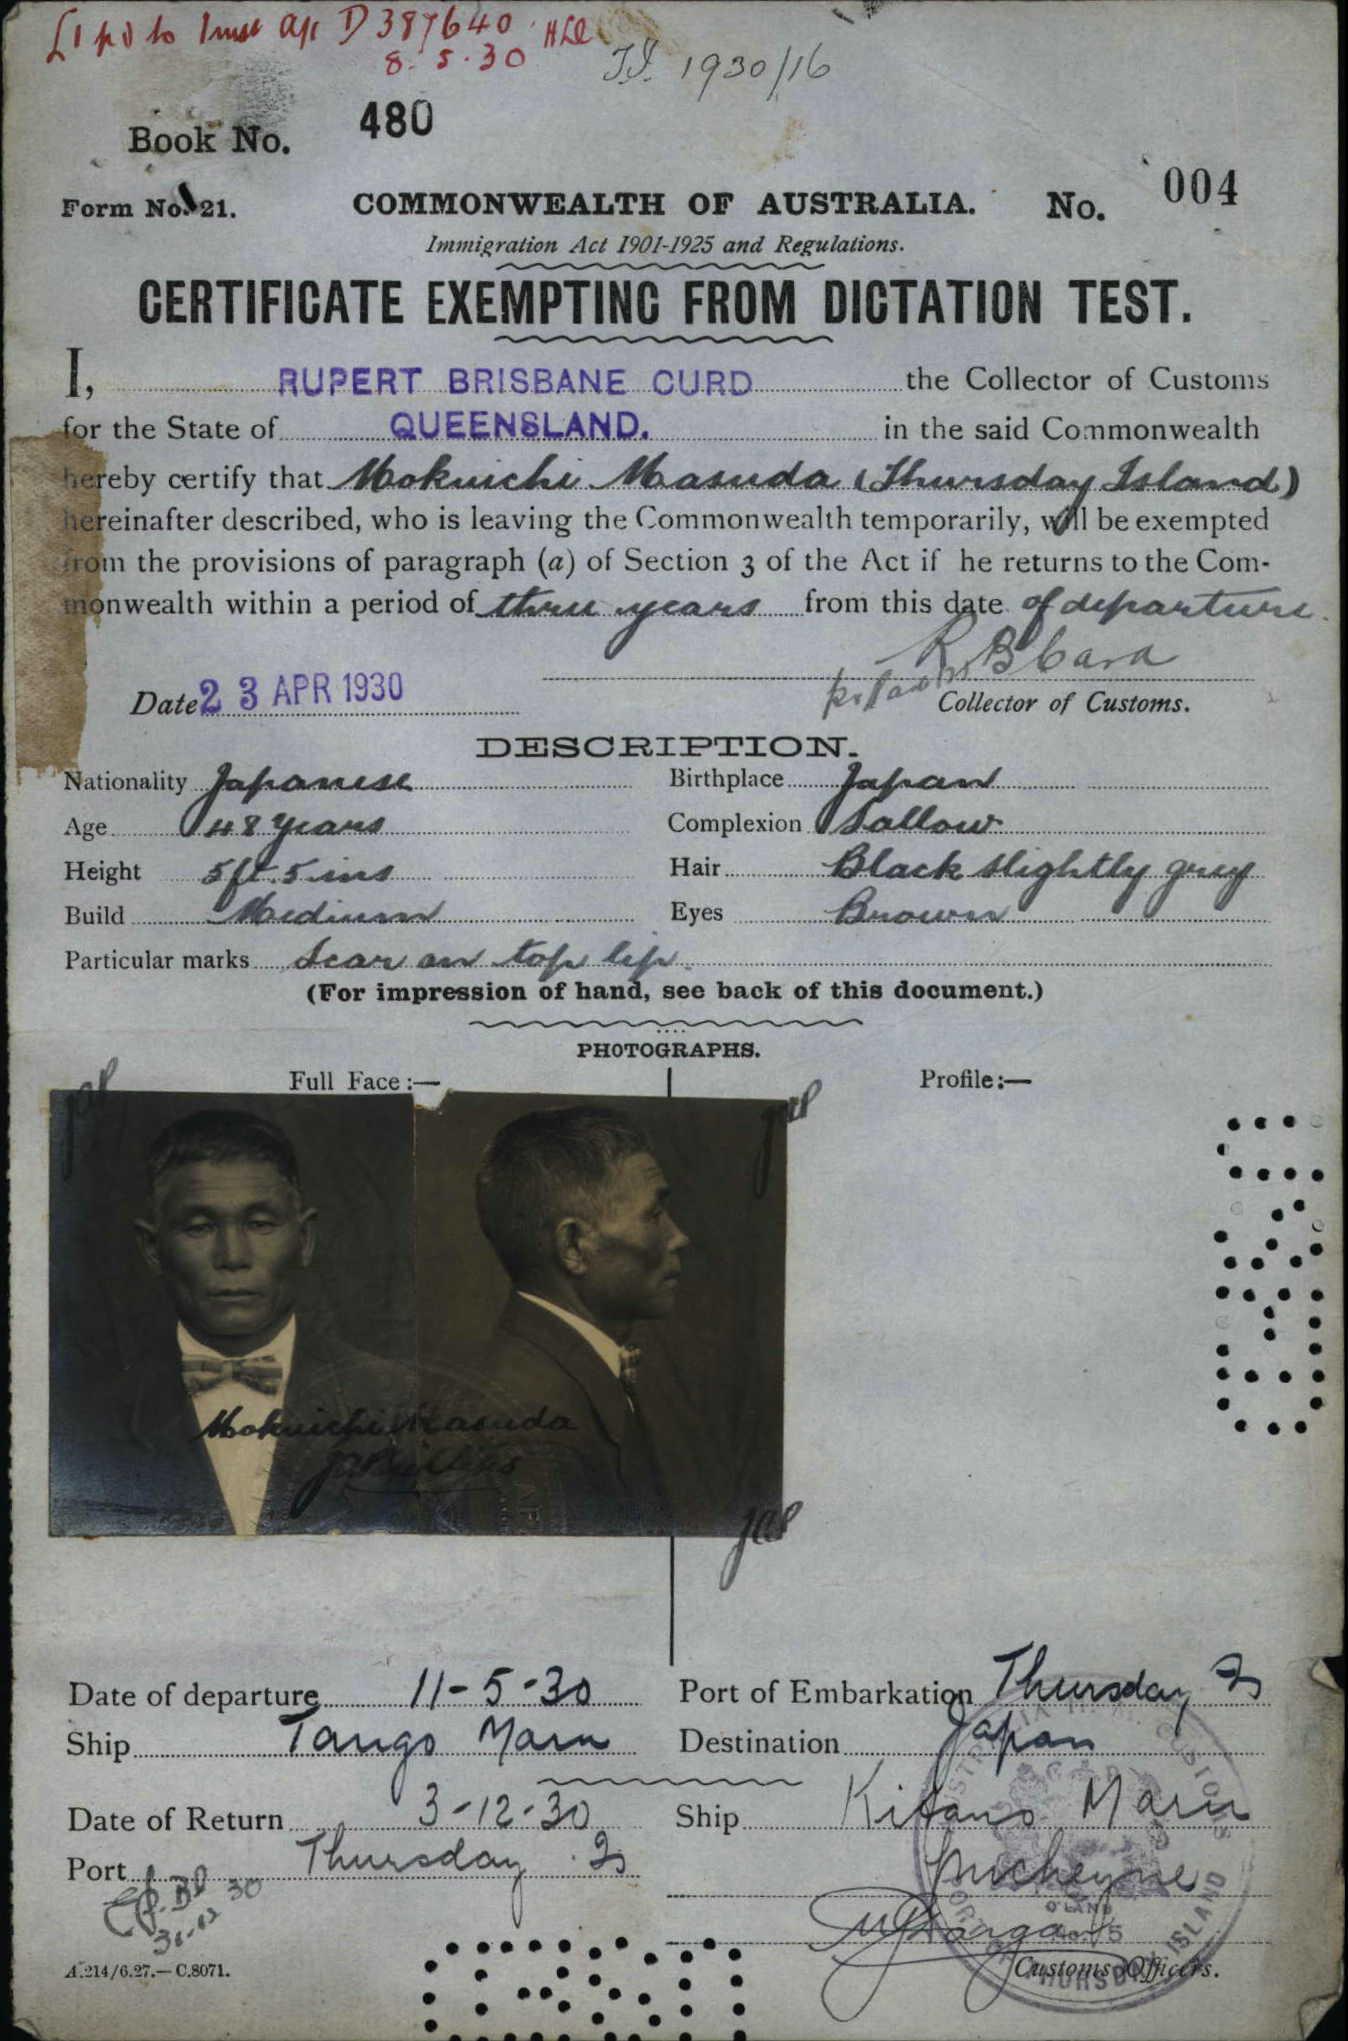 £1 pd to Trust a/c D 387640 HLD
8.5.30
T.I. 1930/16
Book No. 480
Form No. 21.
COMMONWEALTH OF AUSTRALIA. No. 004
Immigration Act 1901-1925 and Regulations.
CERTIFICATE EXEMPTING FROM DICTATION TEST.
I, RUPERT BRISBANE CURD the Collector of Customs
for the State of QUEENSLAND. in the said Commonwealth
hereby certify that Mokuichi Masuda (Thursday Island)
hereinafter described, who is leaving the Commonwealth temporarily, will be exempted
from the provisions of paragraph (a) of Section 3 of the Act if he returns to the Com-
monwealth within a period of three years from this date of departure.
R B Curd
Date 23 APR 1930
Collector of Customs.
DESCRIPTION.
Nationality Japanese Birthplace Japan
Age 48 years Complexion Sallow
Height 5ft. 5 ins Hair Black slightly grey
Build Medium Eyes Brown
Particular marks Scar on top lip.
(For impression of hand, see back of this document.)
PHOTOGRAPHS.
Full Face:— Profile:—
Mokuichi Masuda
Date of departure 11-5-30 Port of Embarkation Thursday Is
Ship Tango Maru Destination Japan
Date of Return 3-12-30 Ship Kitano Maru
Port Thursday Is
30
31-12
Customs Officers.
A.214/6.27.—C.8071.
PORT OF THURSDAY ISLAND